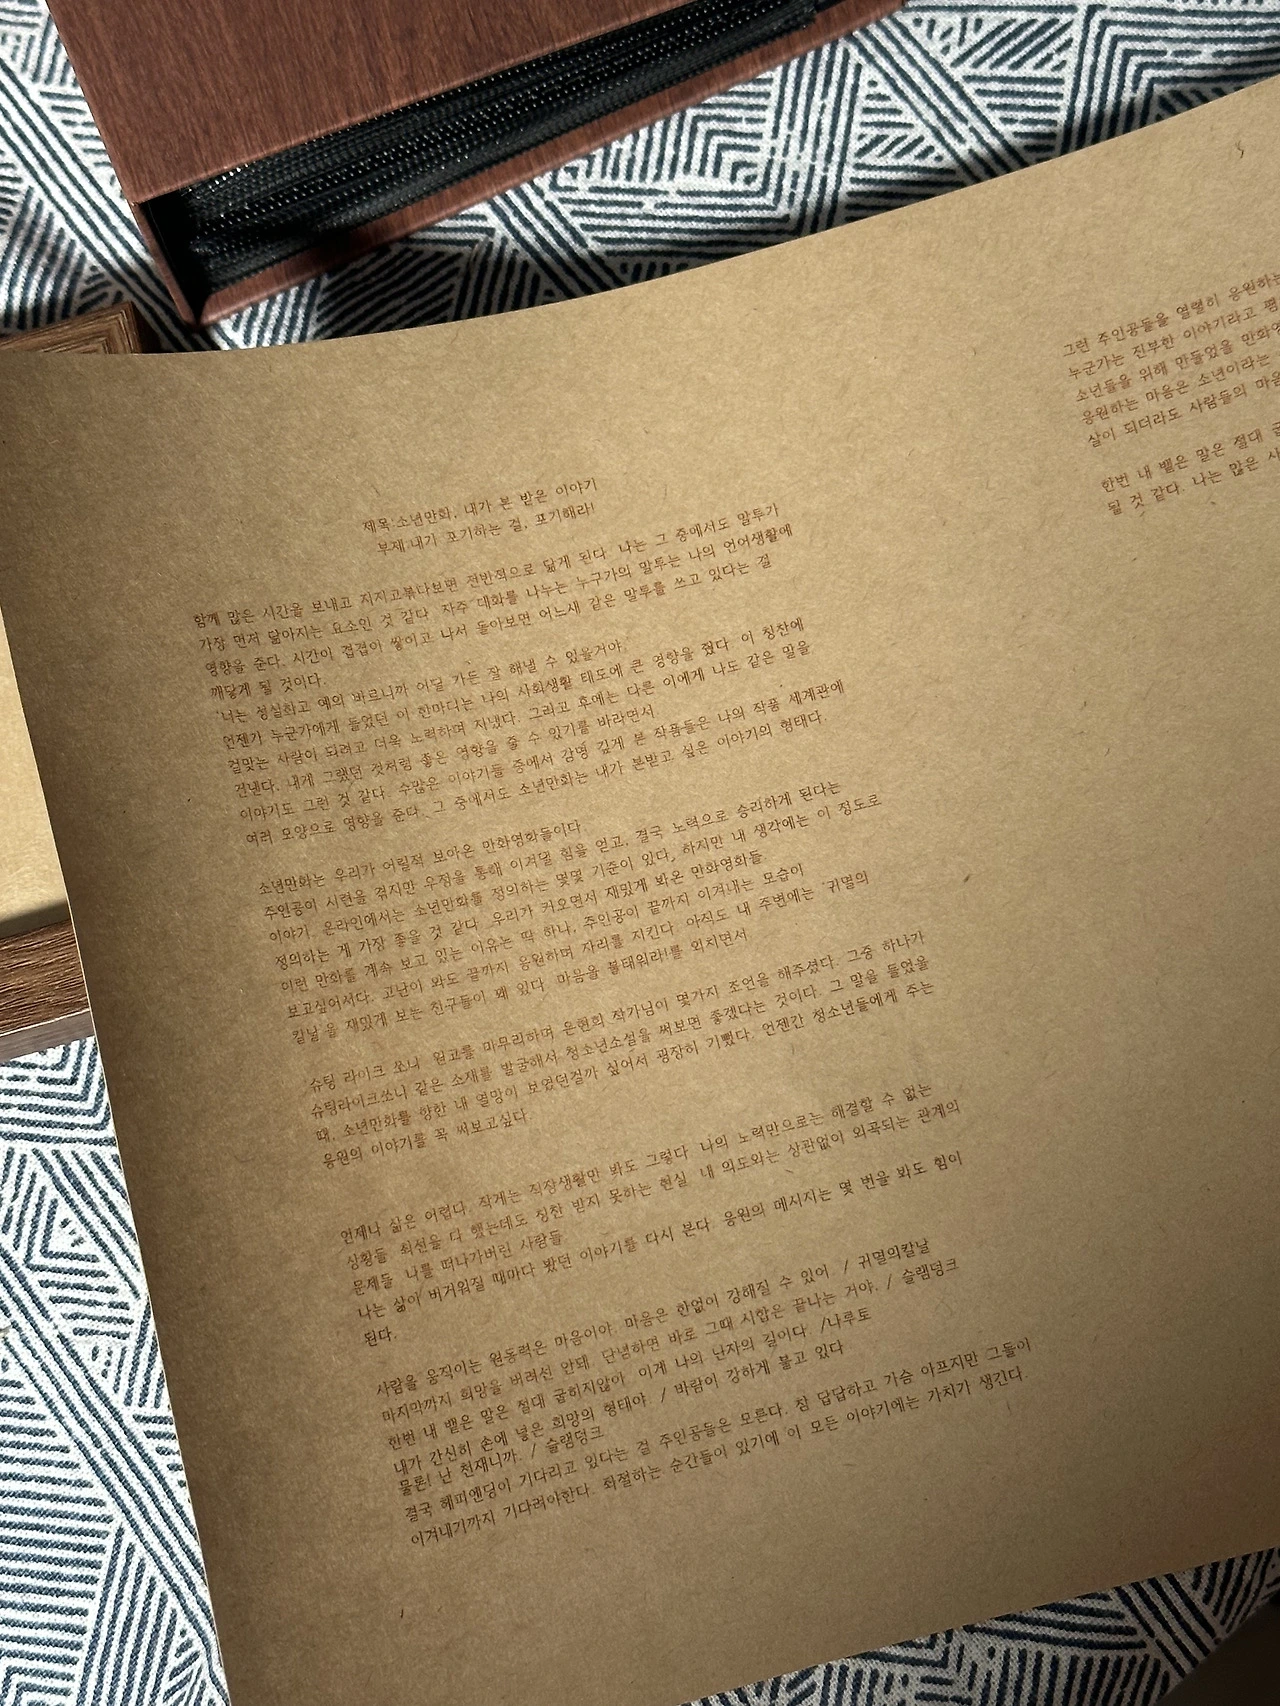 제목:소년만화, 내가 본 받은 이야기
부제:내가 포기하는 걸, 포기해라!
함께 많은 시간을 보내고 지지고볶다보면 전반적으로 닮게 된다. 나는 그 중에서도 말투가
가장 먼저 닮아지는 요소인 것 같다. 자주 대화를 나누는 누구가의 말투는 나의 언어생활에
영향을 준다. 시간이 겹겹이 쌓이고 나서 돌아보면 어느새 같은 말투를 쓰고 있다는 걸
깨닫게 될 것이다.
'너는 성실하고 예의 바르니까 어딜 가든 잘 해낼 수 있을거야.'
언젠가 누군가에게 들었던 이 한마디는 나의 사회생활 태도에 큰 영향을 줬다. 이 칭찬에
걸맞는 사람이 되려고 더욱 노력하며 지냈다. 그리고 후에는 다른 이에게 나도 같은 말을
건넨다. 내게 그랬던 것처럼 좋은 영향을 줄 수 있기를 바라면서.
이야기도 그런 것 같다. 수많은 이야기들 중에서 감명 깊게 본 작품들은 나의 작품 세계관에
여러 모양으로 영향을 준다. 그 중에서도 소년만화는 내가 본받고 싶은 이야기의 형태다.
소년만화는 우리가 어릴적 보아온 만화영화들이다.
주인공이 시련을 겪지만 우정을 통해 이겨낼 힘을 얻고, 결국 노력으로 승리하게 된다는
이야기. 온라인에서는 소년만화를 정의하는 몇몇 기준이 있다. 하지만 내 생각에는 이 정도로
정의하는 게 가장 좋을 것 같다. 우리가 커오면서 재밌게 봐온 만화영화들.
이런 만화를 계속 보고 있는 이유는 딱 하나, 주인공이 끝까지 이겨내는 모습이
보고싶어서다. 고난이 와도 끝까지 응원하며 자리를 지킨다. 아직도 내 주변에는 '귀멸의
칼날'을 재밌게 보는 친구들이 꽤 있다. 마음을 불태워라!를 외치면서.
슈팅 라이크 쏘니 원고를 마무리하며 은현희 작가님이 몇가지 조언을 해주셨다. 그중 하나가
슈팅라이크쏘니 같은 소재를 발굴해서 청소년소설을 써보면 좋겠다는 것이다. 그 말을 들었을
때, 소년만화를 향한 내 열망이 보였던걸까 싶어서 굉장히 기뻤다. 언젠간 청소년들에게 주는
응원의 이야기를 꼭 써보고싶다.
언제나 삶은 어렵다. 작게는 직장생활만 봐도 그렇다. 나의 노력만으로는 해결할 수 없는
상황들. 최선을 다 했는데도 칭찬 받지 못하는 현실. 내 의도와는 상관없이 왜곡되는 관계의
문제들. 나를 떠나가버린 사람들.
나는 삶이 버거워질 때마다 봤던 이야기를 다시 본다. 응원의 메시지는 몇 번을 봐도 힘이
된다.
사람을 움직이는 원동력은 마음이야. 마음은 한없이 강해질 수 있어. / 귀멸의칼날
마지막까지 희망을 버려선 안돼. 단념하면 바로 그때 시합은 끝나는 거야. / 슬램덩크
한번 내 뱉은 말은 절대 굽히지않아. 이게 나의 난자의 길이다. /나루토
내가 간신히 손에 넣은 희망의 형태야. / 바람이 강하게 불고 있다
물론! 난 천재니까. / 슬램덩크
결국 해피엔딩이 기다리고 있다는 걸 주인공들은 모른다. 참 답답하고 가슴 아프지만 그들이
이겨내기까지 기다려야한다. 좌절하는 순간들이 있기에 이 모든 이야기에는 가치가 생긴다.
그런 주인공들을 열렬히 응원하는
누군가는 진부한 이야기라고 평
소년들을 위해 만들었을 만화영
응원하는 마음은 소년이라는
살이 되더라도 사람들의 마음
한번 내 뱉은 말은 절대 굽
될 것 같다. 나는 많은 사